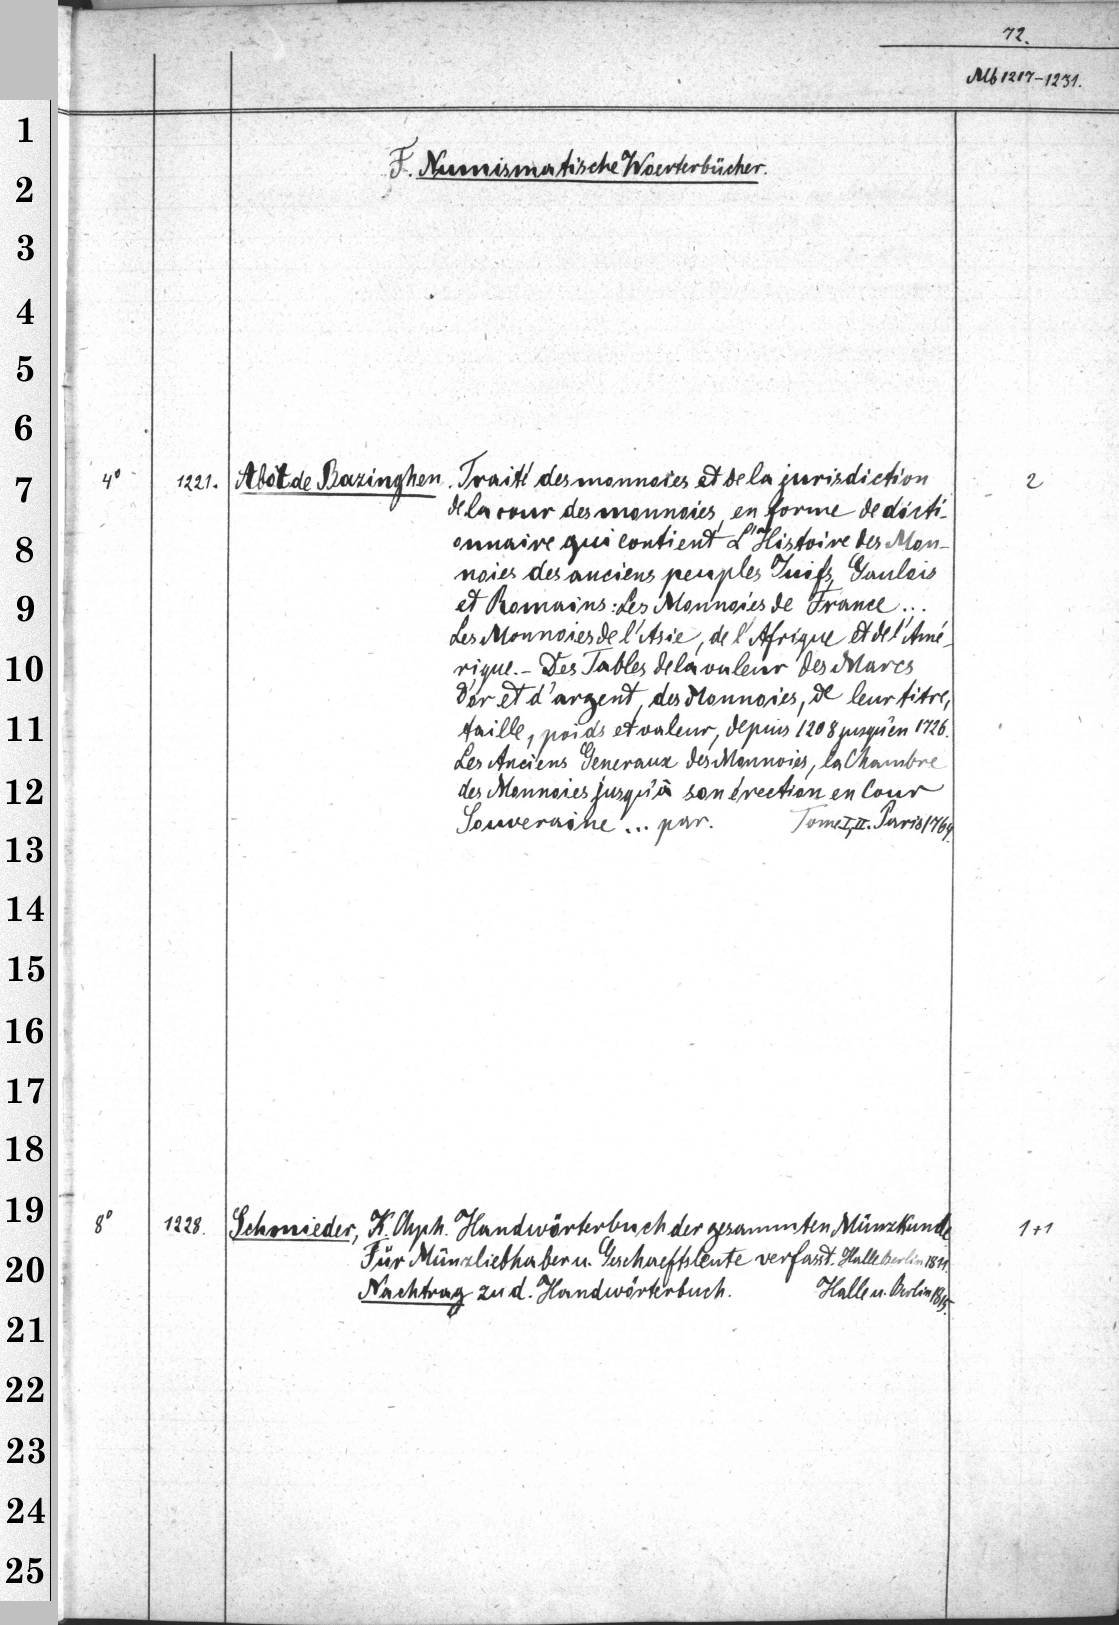 72.
Mb 1217-1231.
F. Numismatische Woerterbücher.
4° 1221. Abot de Bazinghen. Traité des monnoies et de la jurisdiction 2
de la cour des monnoies, en forme de dicti-
onnaire qui contient L'Histoire des Mon-
noies des anciens peuples Juifs, Gaulois
et Romains: Les Monnoies de France ...
Les Monnoies de l'Asie, de l'Afrique et de l'Amé-
rique. - Des Tables de la valeur des Marcs
d'or et d'argent, des Monnoies, de leur titre,
taille, poids et valeur, depuis 1208 jusqu'en 1726.
Les Anciens Generaux des Monnoies, la Chambre
des Monnoies jusqu'à son érection en Cour
Souveraine ... par. Tome I, II. Paris 1764.
8° 1228. Schmieder, K. Chph. Handwörterbuch der gesammten Münzkunde 1+1
Für Münzliebhaber u. Geschaeftsleute verfasst. Halle Berlin 1811.
Nachtrag zu d. Handwörterbuch. Halle u. Berlin 1815.
1
2
3
4
5
6
7
8
9
10
11
12
13
14
15
16
17
18
19
20
21
22
23
24
25